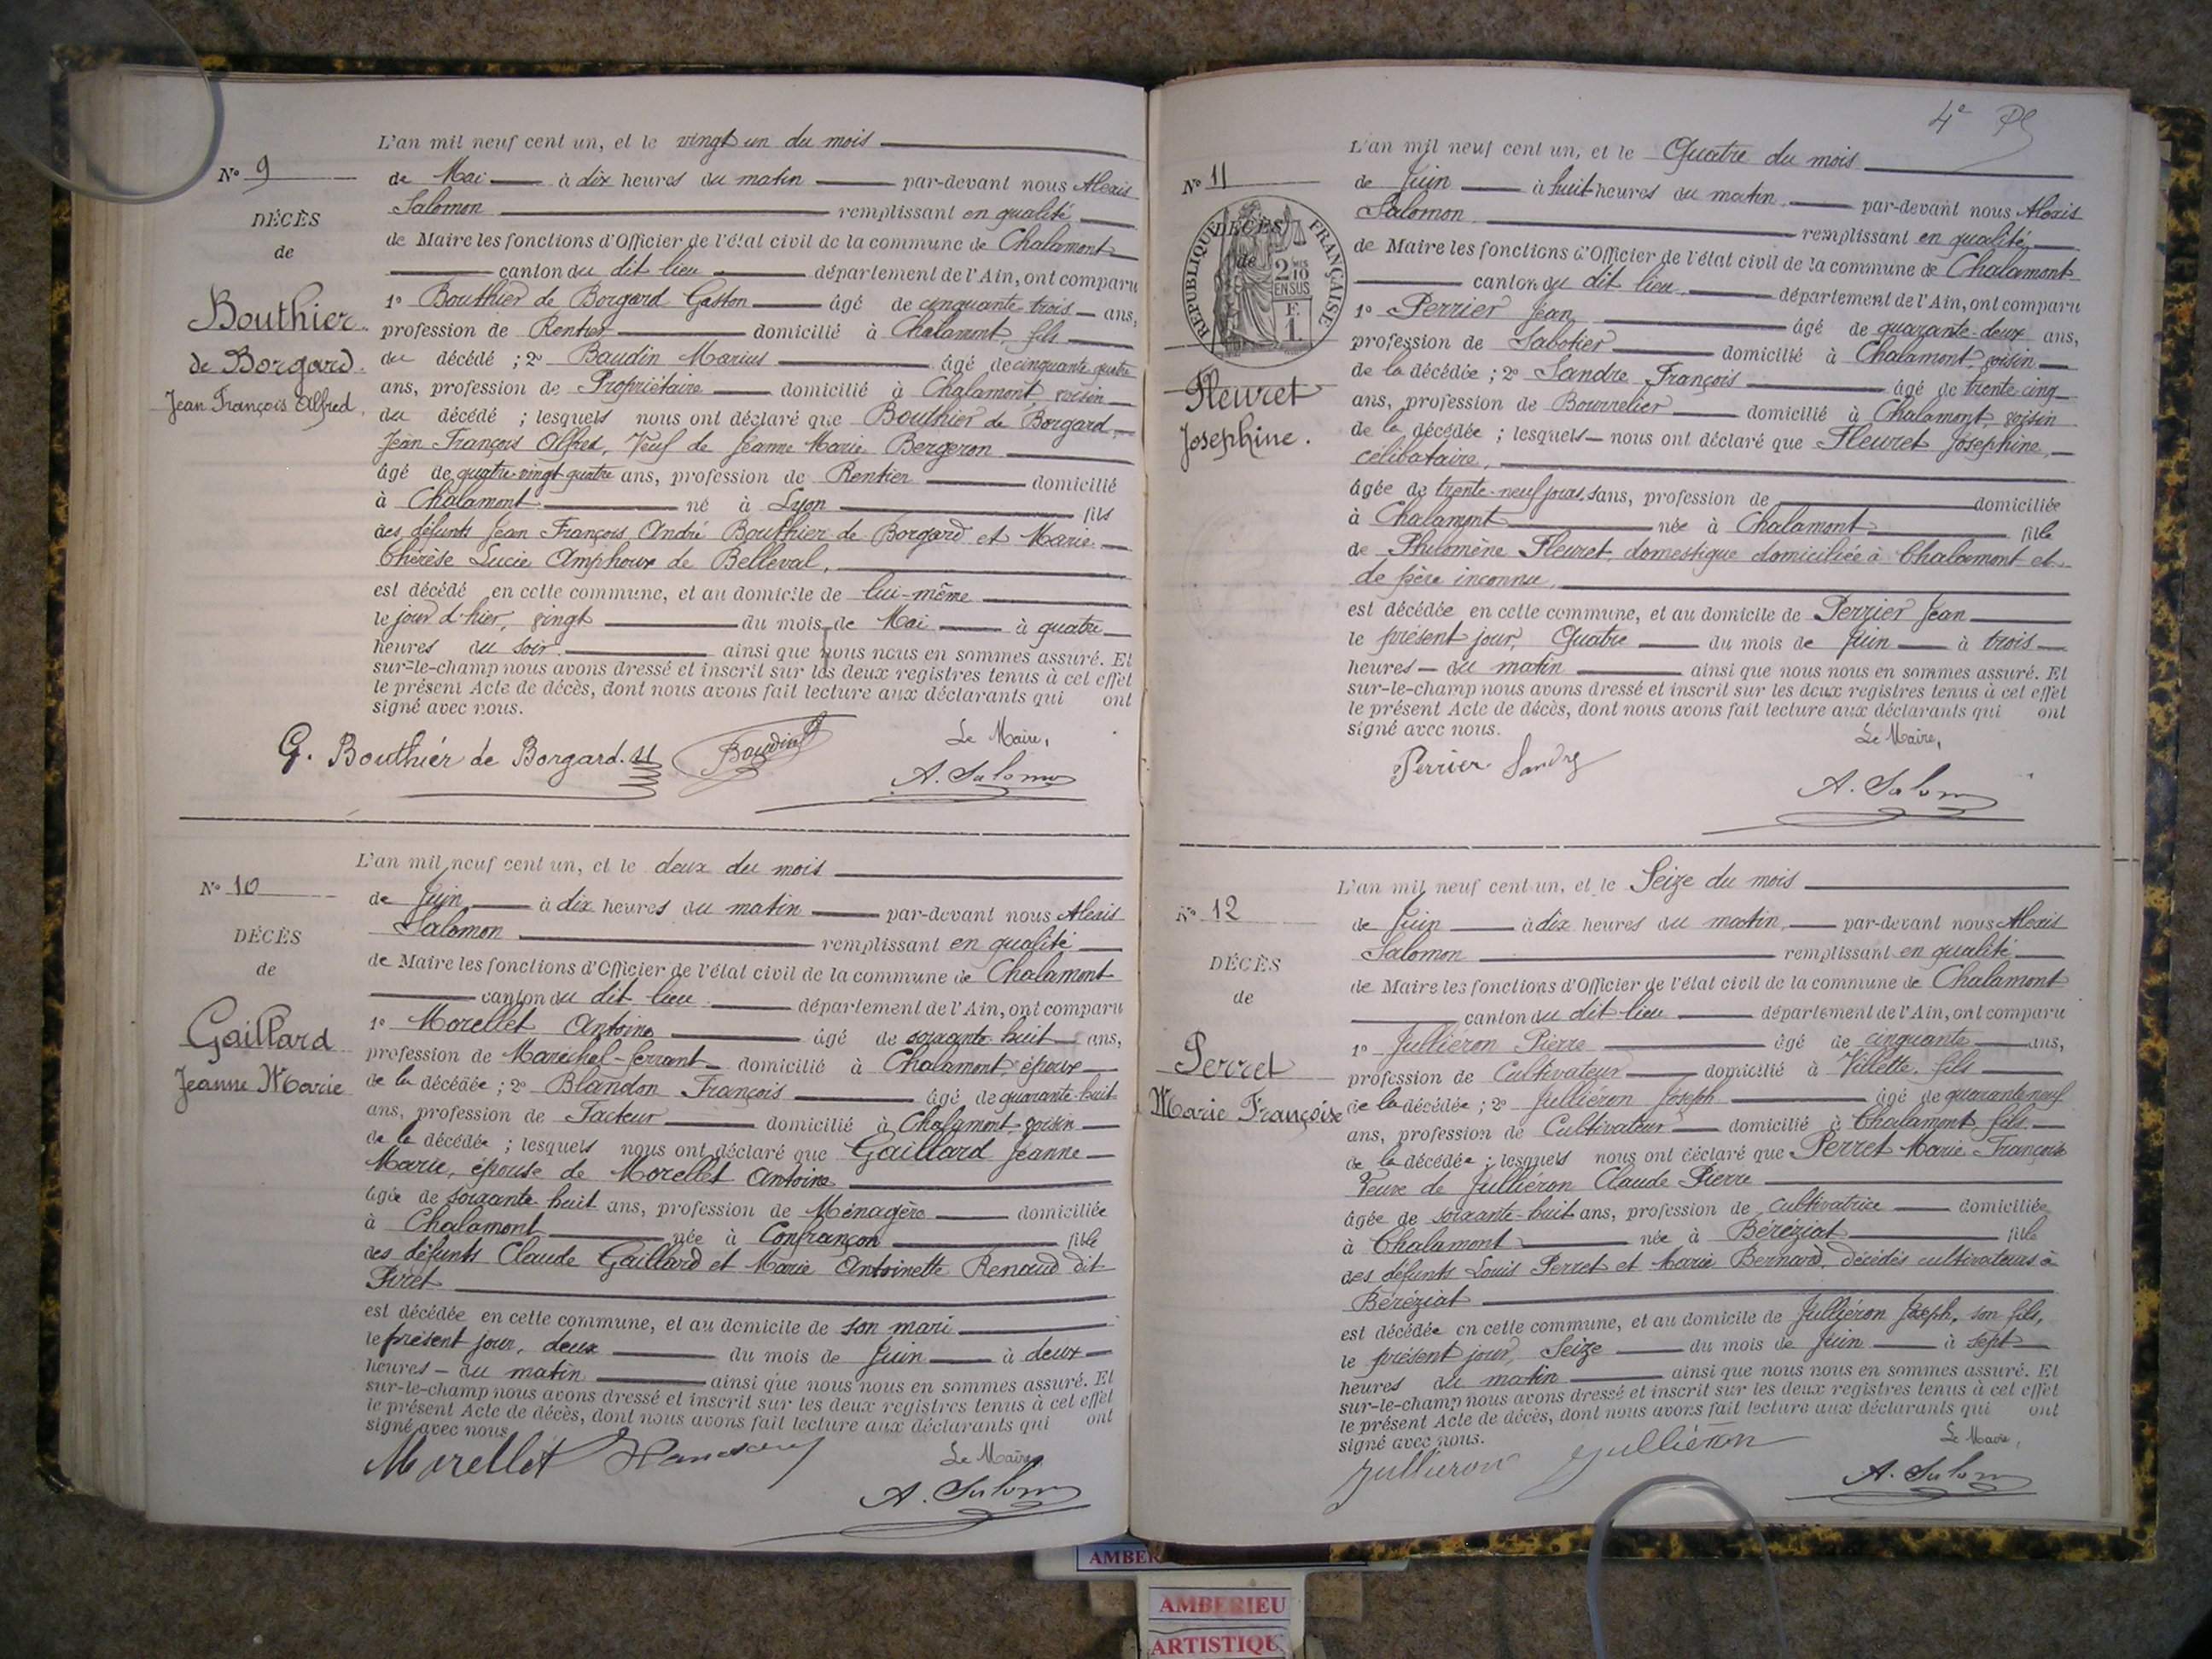 L'an mil neuf cent un, et le vingt un du mois
N° 9
de Mai à dix heures du matin par-devant nous Alexis
Salomon remplissant en qualité
DÉCÈS
de
de Maire les fonctions d'Officier de l'état civil de la commune de Chalamont
canton du dit lieu département de l'Ain, ont comparu
Bouthier
de Borgard
Jean François Alfred
1° Bouthier de Borgard Gaston âgé de cinquante trois ans,
profession de Rentier domicilié à Chalamont, fils
du décédé ; 2° Baudin Marius âgé de cinquante quatre
ans, profession de Propriétaire domicilié à Chalamont, voisin
du décédé ; lesquels nous ont déclaré que Bouthier de Borgard
Jean François Alfred, Veuf de Jeanne Marie Bergeron
âgé de quatre-vingt quatre ans, profession de Rentier domicilié
à Chalamont né à Lyon fils
des défunts Jean François André Bouthier de Borgard et Marie
Thérèse Lucie Amphoux de Belleval,
est décédé en cette commune, et au domicile de lui-même
le jour d'hier, vingt du mois de Mai à quatre
heures du soir ainsi que nous nous en sommes assuré. Et
sur-le-champ nous avons dressé et inscrit sur les deux registres tenus à cet effet
le présent Acte de décès, dont nous avons fait lecture aux déclarants qui ont
signé avec nous.
Le Maire,
G. Bouthier de Borgard. Baudin A. Salomon
L'an mil neuf cent un, et le deux du mois
N° 10
de Juin à dix heures du matin par-devant nous Alexis
Salomon remplissant en qualité
DÉCÈS
de
de Maire les fonctions d'Officier de l'état civil de la commune de Chalamont
canton du dit lieu département de l'Ain, ont comparu
Gaillard
Jeanne Marie
1° Morellet Antoine âgé de soixante huit ans,
profession de Maréchal-ferrant domicilié à Chalamont, époux
de la décédée ; 2° Blandon François âgé de quarante-huit
ans, profession de Facteur domicilié à Chalamont, voisin
de la décédée ; lesquels nous ont déclaré que Gaillard Jeanne
Marie, épouse de Morellet Antoine
âgée de soixante huit ans, profession de Ménagère domiciliée
à Chalamont née à Confrançon fille
des défunts Claude Gaillard et Marie Antoinette Renaud dit
Piret
est décédée en cette commune, et au domicile de son mari
le présent jour, deux du mois de Juin à deux
heures du matin ainsi que nous nous en sommes assuré. Et
sur-le-champ nous avons dressé et inscrit sur les deux registres tenus à cet effet
le présent Acte de décès, dont nous avons fait lecture aux déclarants qui ont
signé avec nous
Le Maire,
Morellet A. Salomon
4e
L'an mil neuf cent un, et le Quatre du mois
N° 11
de Juin à huit heures du matin par-devant nous Alexis
Salomon remplissant en qualité
DÉCÈS
de
RÉPUBLIQUE FRANÇAISE
2 10mes
EN SUS
F.
1
de Maire les fonctions d'Officier de l'état civil de la commune de Chalamont
canton du dit lieu département de l'Ain, ont comparu
Fleuret
Josephine.
1° Perrier Jean âgé de quarante-deux ans,
profession de Sabotier domicilié à Chalamont, voisin
de la décédée ; 2° Sandre François âgé de trente cinq
ans, profession de Bourrelier domicilié à Chalamont, voisin
de la décédée ; lesquels nous ont déclaré que Fleuret Josephine,
célibataire,
âgée de trente-neuf jours, ans, profession de domiciliée
à Chalamont née à Chalamont fille
de Philomène Fleuret, domestique domiciliée à Chalamont et
de père inconnu,
est décédée en cette commune, et au domicile de Perrier Jean
le présent jour, Quatre du mois de Juin à trois
heures du matin ainsi que nous nous en sommes assuré. Et
sur-le-champ nous avons dressé et inscrit sur les deux registres tenus à cet effet
le présent Acte de décès, dont nous avons fait lecture aux déclarants qui ont
signé avec nous.
Le Maire,
Perrier Sandre A. Salomon
L'an mil neuf cent un, et le Seize du mois
N° 12
de Juin à dix heures du matin, par-devant nous Alexis
Salomon remplissant en qualité
DÉCÈS
de
de Maire les fonctions d'Officier de l'état civil de la commune de Chalamont
canton du dit lieu département de l'Ain, ont comparu
Perret
Marie Françoise
1° Julliéron Pierre âgé de cinquante ans,
profession de Cultivateur domicilié à Villette, fils
de la décédée ; 2° Julliéron Joseph âgé de quarante neuf
ans, profession de Cultivateur domicilié à Chalamont, fils
de la décédée ; lesquels nous ont déclaré que Perret Marie Françoise
Veuve de Julliéron Claude Pierre
âgée de soixante-huit ans, profession de cultivatrice domiciliée
à Chalamont née à Béréziat fille
des défunts Louis Perret et Marie Bernard, décédés cultivateurs à
Béréziat
est décédée en cette commune, et au domicile de Julliéron Joseph, son fils,
le présent jour, Seize du mois de Juin à sept
heures du matin ainsi que nous nous en sommes assuré. Et
sur-le-champ nous avons dressé et inscrit sur les deux registres tenus à cet effet
le présent Acte de décès, dont nous avons fait lecture aux déclarants qui ont
signé avec nous.
Le Maire,
Julliéron Julliéron A. Salomon
AMBERIEU
ARTISTIQU